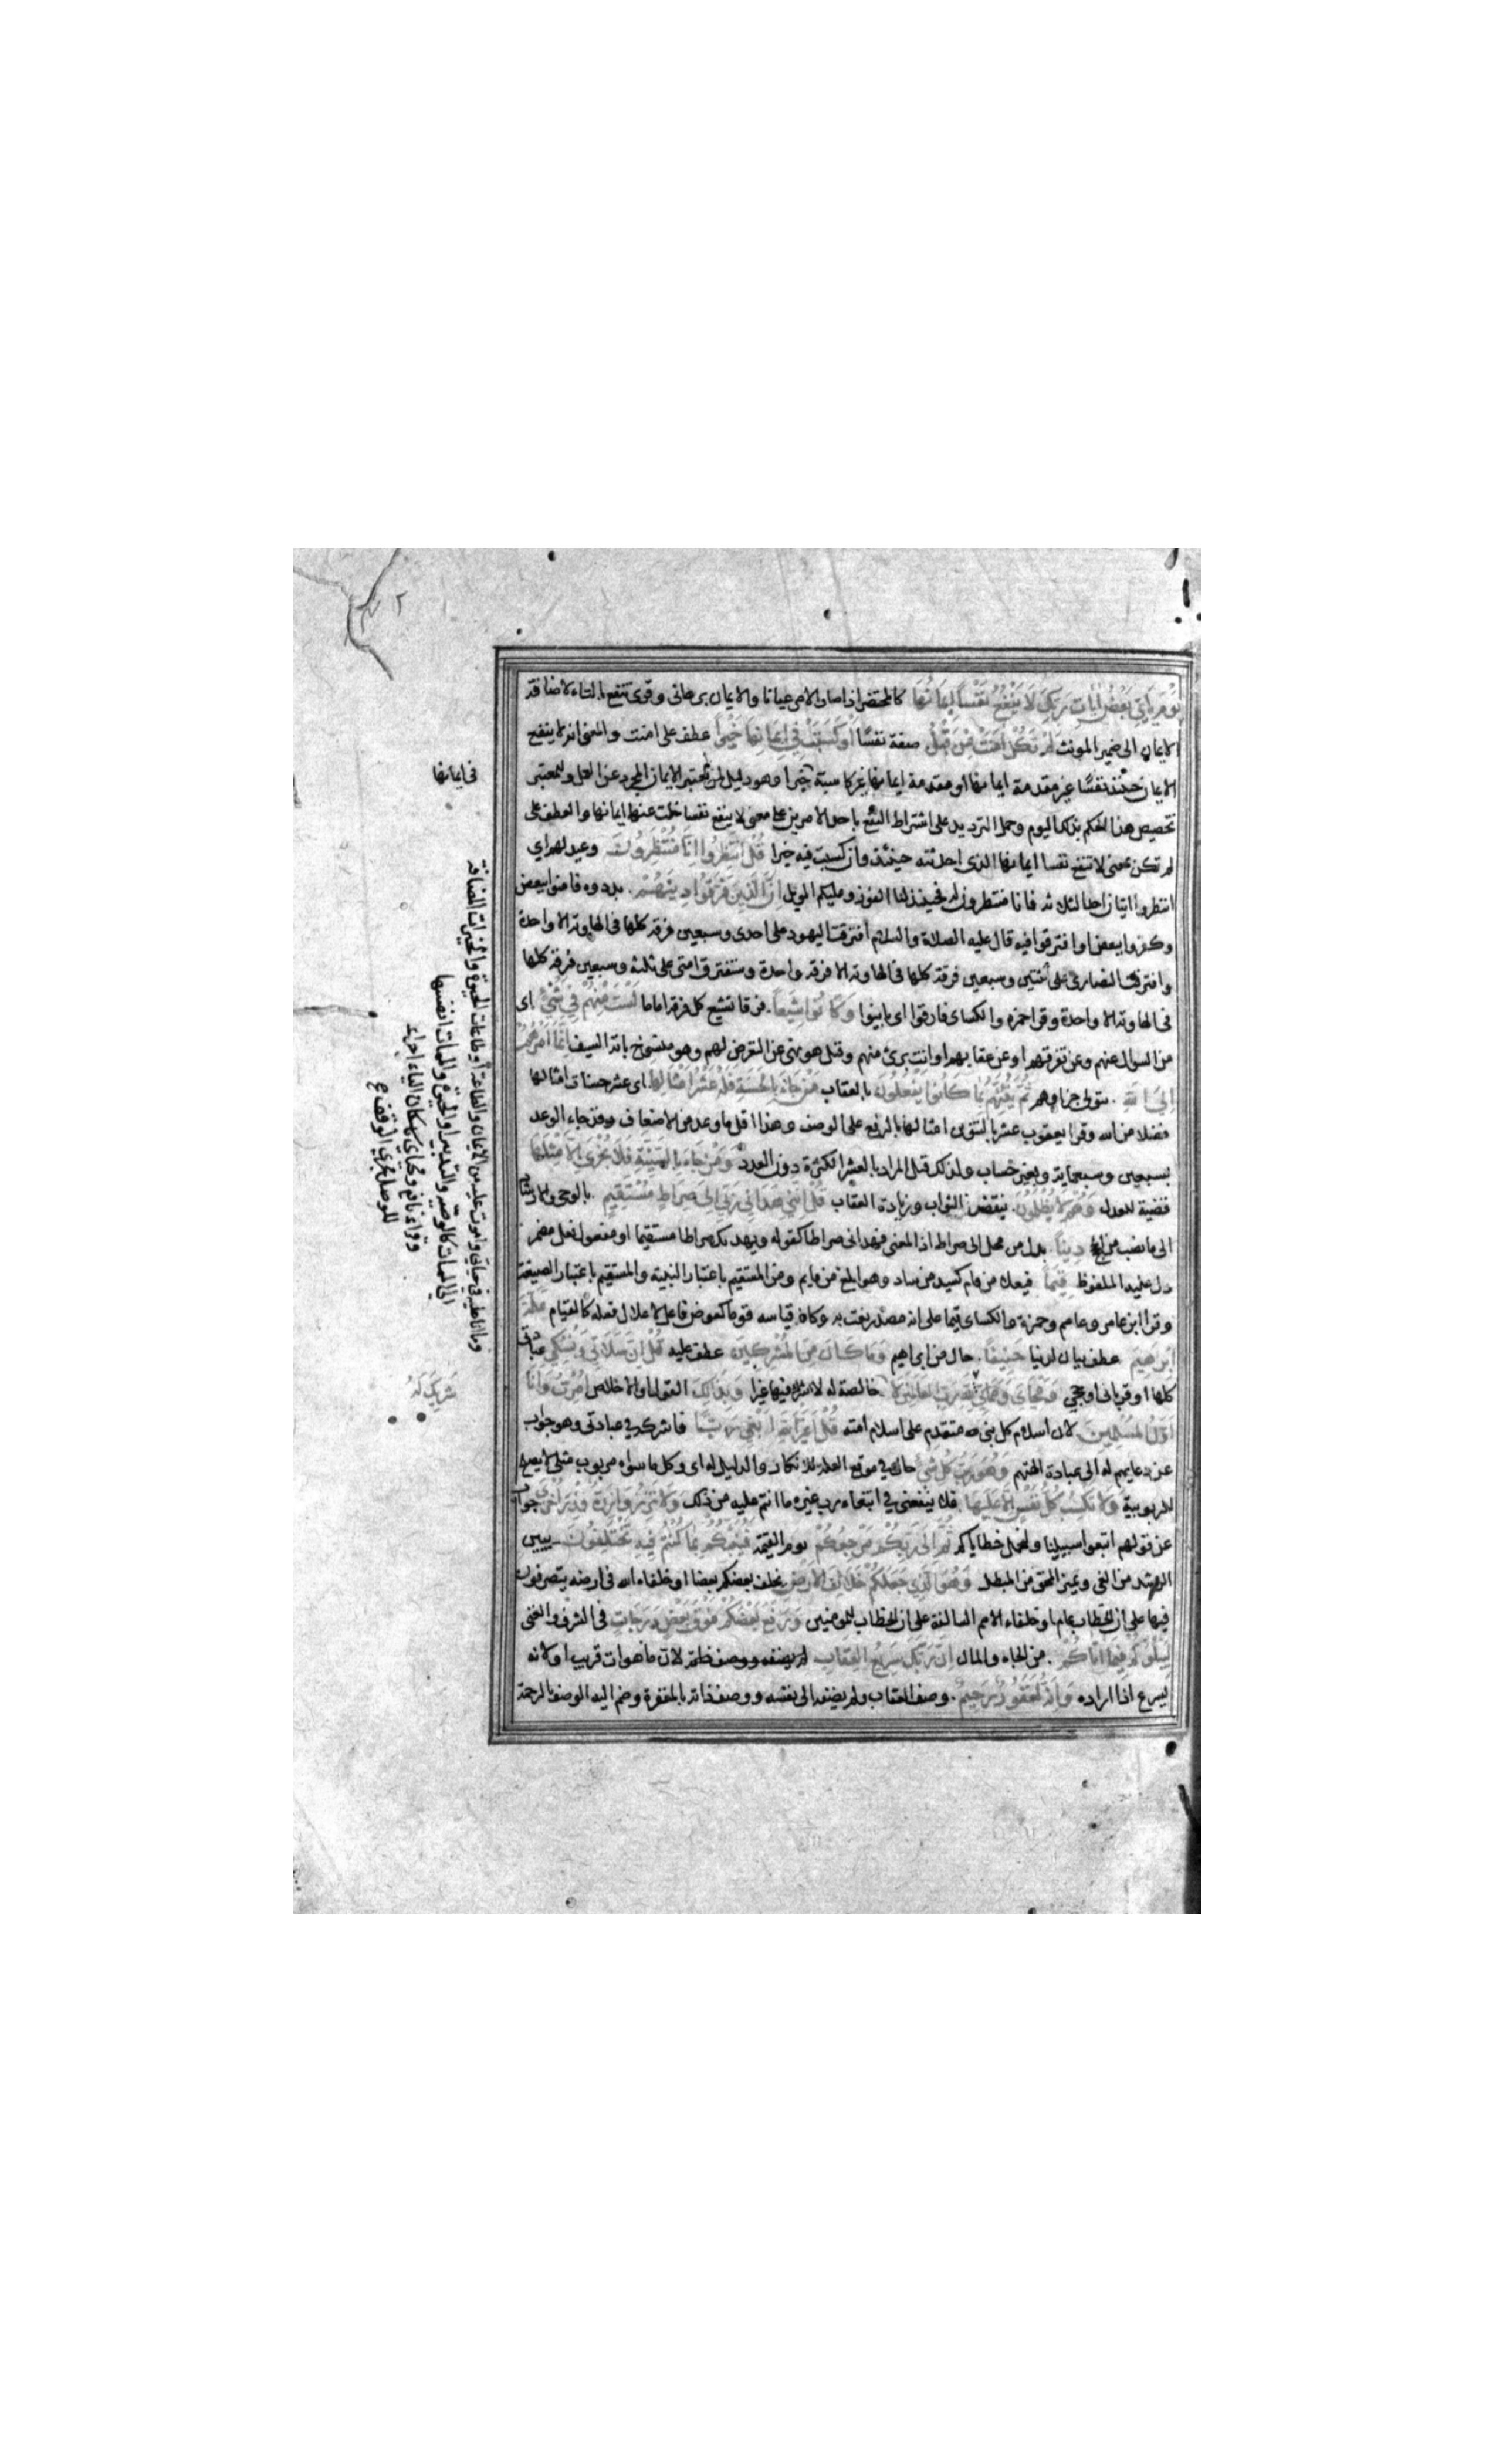 يَوْمَ يَأْتِي بَعْضُ اٰيَاتِ رَبِّكَ لَا يَنْفَعُ نَفْسًا اِيمَانُهَا كالمحتضر اذا صار الامر عيانا والايمان برهانى وقرئ تنفع بالتاء لاضافة
الايمان الى ضمير المونث لَمْ تَكُنْ اٰمَنَتْ مِنْ قَبْلُ صفة نفسًا اَوْ كَسَبَتْ فِي اِيمَانِهَا خَيْرًا عطف على امنت والمعنى انه لا ينفع
الايمان حينئذ نفسًا غير مقدمة ايمانها او مقدمة ايمانها غير كاسبة خيرا وهو دليل لمن لم يعتبر الايمان المجرد عن العمل وللمعتبر
تخصيص هذا الحكم بذلك اليوم وحمل الترديد على اشتراط النفع باحد الامرين على معنى لا ينفع نفسا خلت عنهما ايمانها والعطف على
لم تكن بمعنى لا تنفع نفسا ايمانها الذى احدثته حينئذ وان كسبت فيه خيرا قُلِ انْتَظِرُوا اِنَّا مُنْتَظِرُونَ وعيد لهم اي
انتظروا اتيان احد الثلاثة فانا منتظرون له فحينئذ لنا الفوز وعليكم الويل اِنَّ الَّذِينَ فَرَّقُوا دِينَهُمْ بددوه فامنوا ببعض
وكفروا ببعض او افترقوا فيه قال عليه الصلاة والسلام افترقت اليهود على احدى وسبعين فرقة كلها فى الهاوية الا واحدة
وافترقت النصارى على ثنتين وسبعين فرقة كلها فى الهاوية الا فرقة واحدة وستفترق امتى على ثلثة وسبعين فرقة كلها
فى الهاوية الا واحدة وقرا حمزه والكساى فارقوا اى باينوا وَكَانُوا شِيَعًا فرقا تشيع كل فرقة اماما لَسْتَ مِنْهُمْ فِي شَيْءٍ اى
من السؤال عنهم وعن تفرقهم او عن عقابهم او انت برئ منهم وقيل هو نهى عن التعرض لهم وهو منسوخ باية السيف اِنَّمَا اَمْرُهُمْ
اِلَى اللّٰهِ يتولى جزاوهم ثُمَّ يُنَبِّئُهُمْ بِمَا كَانُوا يَفْعَلُونَ بالعقاب مَنْ جَاءَ بِالْحَسَنَةِ فَلَهُ عَشْرُ اَمْثَالِهَا اى عشر حسنات امثالها
فضلا من الله وقرا يعقوب عشر بالتنوين امثالها بالرفع على الوصف وهذا اقل ما وعد من الاضعاف وقد جاء الوعد
بسبعين وسبعماية وبغير حساب ولذلك قيل المراد بالعشر الكثرة دون العدد وَمَنْ جَاءَ بِالسَّيِّئَةِ فَلَا يُجْزٰى اِلَّا مِثْلَهَا
قضية للعدل وَهُمْ لَا يُظْلَمُونَ بنقض الثواب وزيادة العقاب قُلْ اِنَّنِي هَدَانِي رَبِّي اِلٰى صِرَاطٍ مُسْتَقِيمٍ بالوحى والارشاد
الى ما نصب من دِينًا بدل من محل الى صراط اذ المعنى هدانى صراطا كقوله ويهديك صراطا مستقيما او مفعول فعل مضمر
دل عليه الملفوظ قِيَمًا فيعل من قام كسيد من ساد وهو ابلغ من قايم ومن المستقيم باعتبار البنية والمستقيم باعتبار الصيغة
وقرا ابن عامر وعاصم وحمزة والكساى قيما على انه مصدر نعت به وكان قياسه قوما كعوض فاعل لاعلال فعله كالقيام مِلَّةَ
اِبْرٰهِيمَ عطف بيان لدينا حَنِيفًا حال من ابراهيم وَمَا كَانَ مِنَ الْمُشْرِكِينَ عطف عليه قُلْ اِنَّ صَلَاتِي وَنُسُكِي عبادتى
كلها او قربانى او حجي وَمَحْيَايَ وَمَمَاتِي لِلّٰهِ رَبِّ الْعَالَمِينَ لَا خالصة له لا اشرك فيها غيرا وَبِذٰلِكَ القول او الاخلاص اُمِرْتُ وَاَنَا
اَوَّلُ الْمُسْلِمِينَ لان اسلام كل نبى متقدم على اسلام امته قُلْ اَغَيْرَ اللّٰهِ اَبْغِي رَبًّا فاشركه في عبادتى وهو جواب
عن دعايهم له الى عبادة الهتهم وَهُوَ رَبُّ كُلِّ شَيْءٍ حال في موقع العلة للانكار والدليل له اى وكل ما سواه مربوب مثلى لا يصلح
للربوبية وَلَا تَكْسِبُ كُلُّ نَفْسٍ اِلَّا عَلَيْهَا فلا ينفعنى في ابتغاء رب غيره ما انتم عليه من ذلك وَلَا تَزِرُ وَازِرَةٌ وِزْرَ اُخْرٰى جواب
عن قولهم اتبعوا سبيلنا ولنحمل خطاياكم ثُمَّ اِلٰى رَبِّكُمْ مَرْجِعُكُمْ يوم القيمة فَيُنَبِّئُكُمْ بِمَا كُنْتُمْ فِيهِ تَخْتَلِفُونَ يبين
الرشد من الغى ويميز المحق من المبطل وَهُوَ الَّذِي جَعَلَكُمْ خَلَائِفَ الْاَرْضِ يخلف بعضكم بعضا او خلفاء الله فى ارضه يتصرفون
فيها على ان الخطاب عام او خلفاء الامم السالفة على ان الخطاب للمومنين وَرَفَعَ بَعْضَكُمْ فَوْقَ بَعْضٍ دَرَجَاتٍ فى الشرف والغنى
لِيَبْلُوَكُمْ فِيمَا اٰتَاكُمْ من الجاه والمال اِنَّ رَبَّكَ سَرِيعُ الْعِقَابِ لان ما هو ات قريب او لانه
يسرع اذا اراده وَاِنَّهُ لَغَفُورٌ رَحِيمٌ وصف العقاب ولم يضفه الى نفسه ووصف ذاته بالمغفرة وضم اليه الوصف بالرحمة
فى ايمانها
وما انا عليه فى حياتى واموت عليه من الايمان والطاعة او طاعات الحيوة والخيرات المضافة
الى الممات كالوصية والتدبير او الحيوة والممات انفسها
وقراء نافع محياى باسكان الياء اجراء
للوصل مجرى الوقف
شَرِيكَ لَهُ